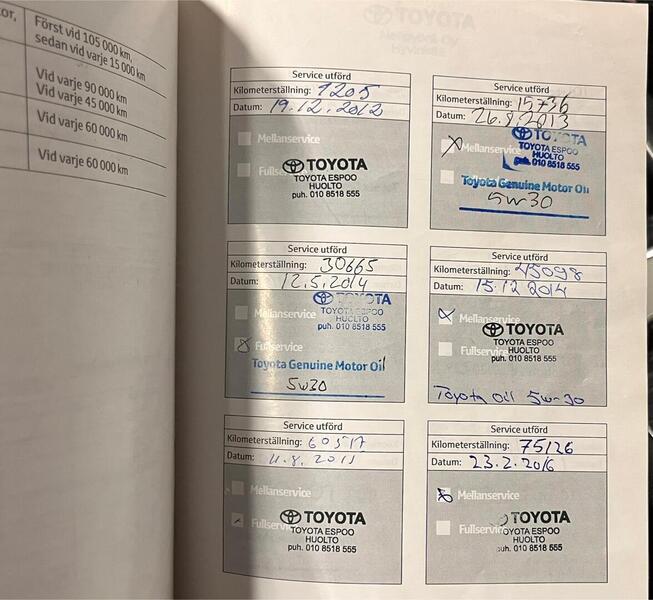 or,
Först vid 105 000 km,
sedan vid varje 15 000 km
Vid varje 90 000 km
Vid varje 45 000 km
Vid varje 60 000 km
Vid varje 60 000 km
TOYOTA
Service utförd
Kilometerställning: 1205
Datum: 19.12.2012
Mellanservice
Fullservice
TOYOTA
TOYOTA ESPOO
HUOLTO
puh. 010 8518 555
Service utförd
Kilometerställning: 15736
Datum: 26.8.2013
TOYOTA
Mellanservice
TOYOTA ESPOO
HUOLTO
puh. 010 8518 555
Toyota Genuine Motor Oil
5w30
Service utförd
Kilometerställning: 30665
Datum: 12.5.2014
TOYOTA
Mellanservice
TOYOTA ESPOO
HUOLTO
puh. 010 8518 555
Fullservice
Toyota Genuine Motor Oil
5w30
Service utförd
Kilometerställning: 45098
Datum: 15.12 2014
Mellanservice
TOYOTA
Fullservice
TOYOTA ESPOO
HUOLTO
puh. 010 8518 555
Toyota oil 5w-30
Service utförd
Kilometerställning: 60517
Datum:
Mellanservice
Fullservice
TOYOTA
TOYOTA ESPOO
HUOLTO
puh. 010 8518 555
Service utförd
Kilometerställning: 75126
Datum: 23.2.2016
Mellanservice
Fullservice
TOYOTA
TOYOTA ESPOO
HUOLTO
puh. 010 8518 555